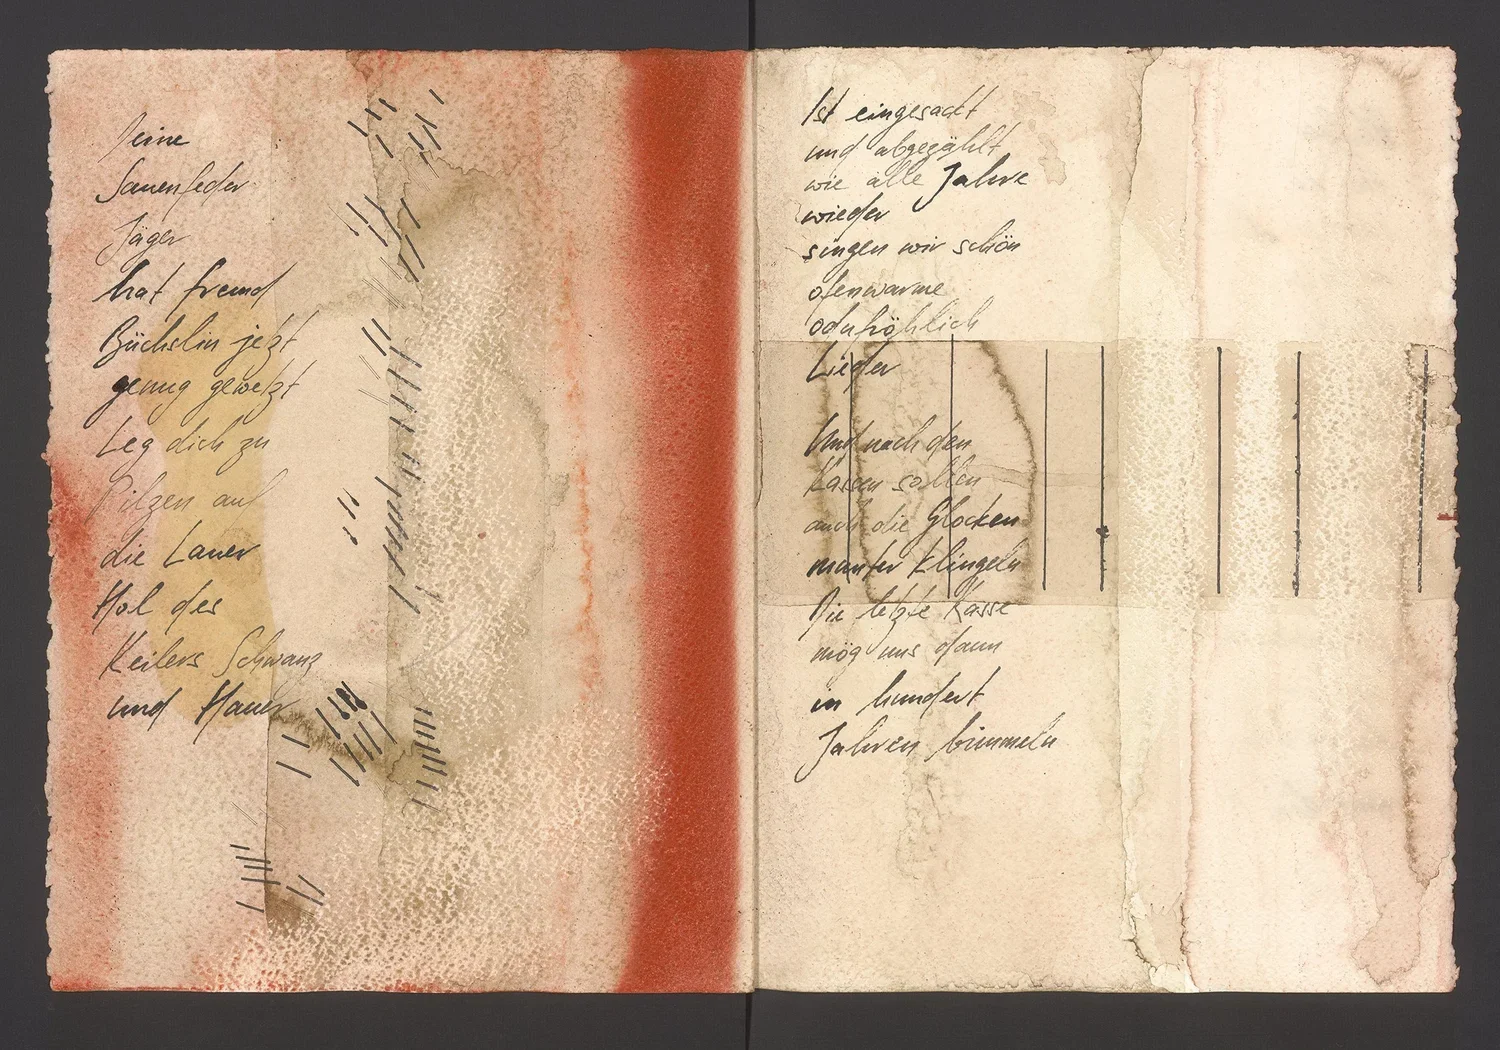 Deine
Sauenfeder
Jäger
hat fremd
Büchslin jetzt
genug gewetzt
Leg dich zu
Pilzen auf
die Lauer
Hol des
Keilers Schwanz
und Hauer
Ist eingesackt
und abgezählt
wie alle Jahre
wieder
singen wir schön
ofenwarme
odufröhlich
Lieder
Und nach den
Kassen sollen
auch die Glocken
munter klingeln
Die letzte Kasse
mög uns dann
in hundert
Jahren bimmeln